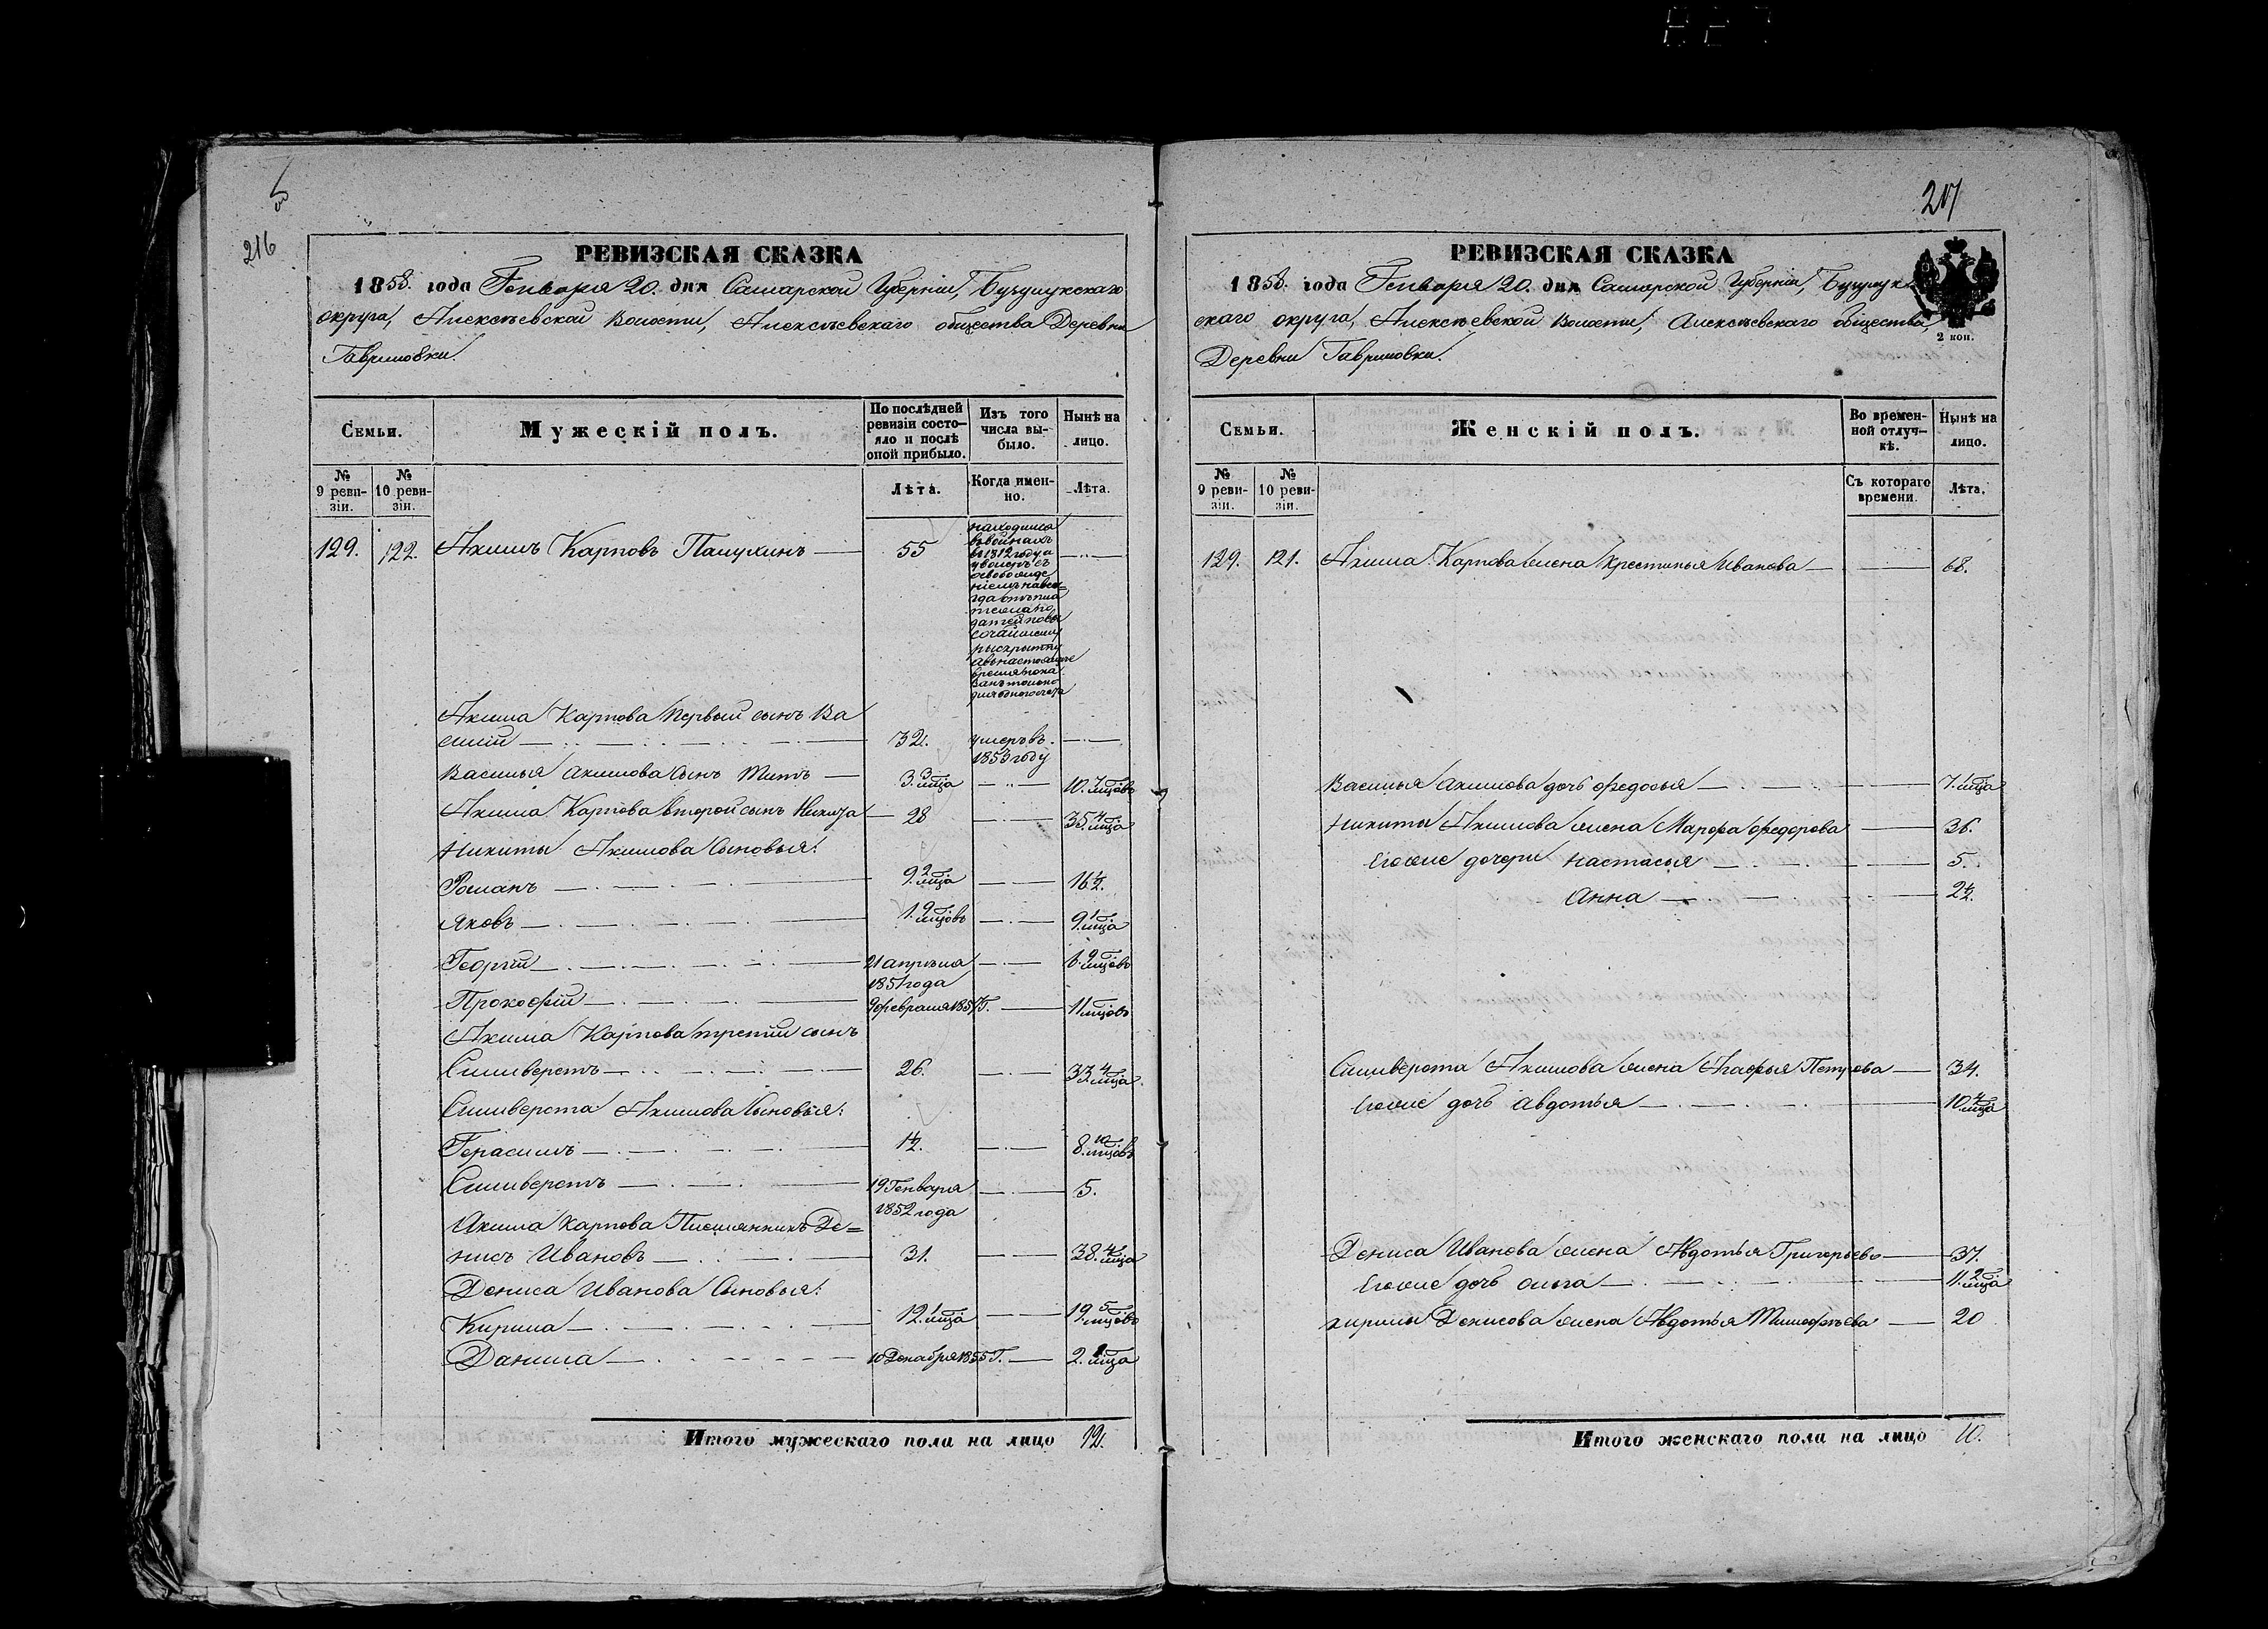 216
РЕВИЗСКАЯ СКАЗКА
1858. года Генваря 20. дня Самарской Губернiи, Бузулукскаго
округа, Алексѣевской Волости, Алексѣевскаго общества Деревни
Гавриловки.
Семьи.
Мужескій полъ.
По послѣдней
ревизіи состо-
яло и послѣ
оной прибыло.
Изъ того
числа вы-
было.
Нынѣ на
лицо.
№
9 реви-
зіи.
№
10 реви-
зіи.
Лѣта.
Когда имен-
но.
Лѣта.
129. 122. Акимъ Карповъ 55
находился
въ войнахъ
въ 1812 году и
уволенъ съ
освобожде
ніемъ навсе=
гда отъ пла
тежа по
датей по вы
сочайшему
а въ настоящее
время пока
занъ только
для одного счета
Акима Карпова первый сынъ Ва
силій 32. умеръ въ
1853 году
Василья Акимова сынъ Титъ 3. 3 мца 10. 7 мцовъ
Акима Карпова второй сынъ Никита 28 35. 4 мца
Никиты Акимова сыновья:
Романъ 9. 2 мца 16 ½.
Яковъ 1. 9 мцовъ 9. 1 мца
Георгій 21 апрѣля
1851 года 6. 9 мцовъ
Прокофій 9 февраля 1857 г. 11 мцовъ
Акима Карпова третій сынъ
Силиверстъ 26. 33. 4 мца.
Силиверста Акимова сыновья:
Герасимъ 1½. 8. 10 мцовъ
Силиверстъ 19 Генваря
1852 года 5.
Акима Карпова Племянникъ Де=
нисъ Ивановъ 31. 38. 4 мца
Дениса Иванова сыновья:
Кирила 12. 1 мца 19. 5 мцовъ
Данила 10 Декабря 1855 г. 2. 1 мца
Итого мужескаго пола на лицо 12.
217
РЕВИЗСКАЯ СКАЗКА
1858. года Генваря 20. дня Самарской Губернiи, Бузулук-
скаго округа, Алексѣевской Волости, Алексѣевскаго общества,
Деревни Гавриловки.
2 коп.
Семьи.
Женскій полъ.
Во времен-
ной отлуч-
кѣ.
Нынѣ на
лицо.
№
9 реви-
зіи.
№
10 реви-
зіи.
Съ котораго
времени.
Лѣта.
129. 121. Акима Карпова жена Крестинья Иванова 68.
Василья Акимова дочь Федосья 7. 1 мца
Никиты Акимова жена Марфа Федорова 36.
Егоже дочери Настасья 5.
Анна 2½.
Силиверста Акимова жена Агафья Петрова 34.
Егоже дочь Авдотья 10. 4 мца
Дениса Иванова жена Авдотья Григорьева 37
Егоже дочь Ольга 11. 2 мца
Кирилы Денисова жена Авдотья Тимофѣева 20
Итого женскаго пола на лицо 10.